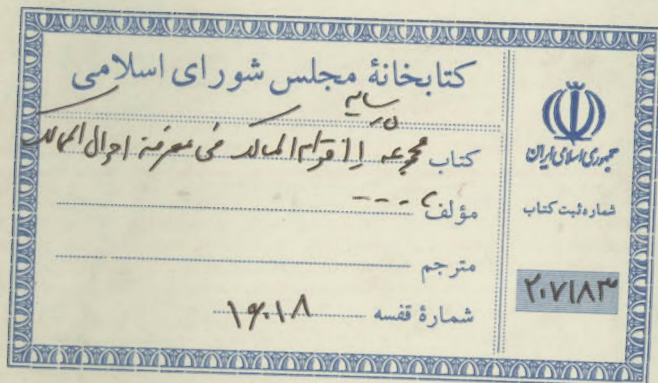 کتابخانهٔ مجلس شورای اسلامی
کتاب مجموعه اقوام المسالک فی معرفة احوال الممالک
مؤلف
مترجم
شمارهٔ قفسه ۱۶۰۱۸
جمهوری اسلامی ایران
شماره ثبت کتاب
۲۰۷۱۸۳